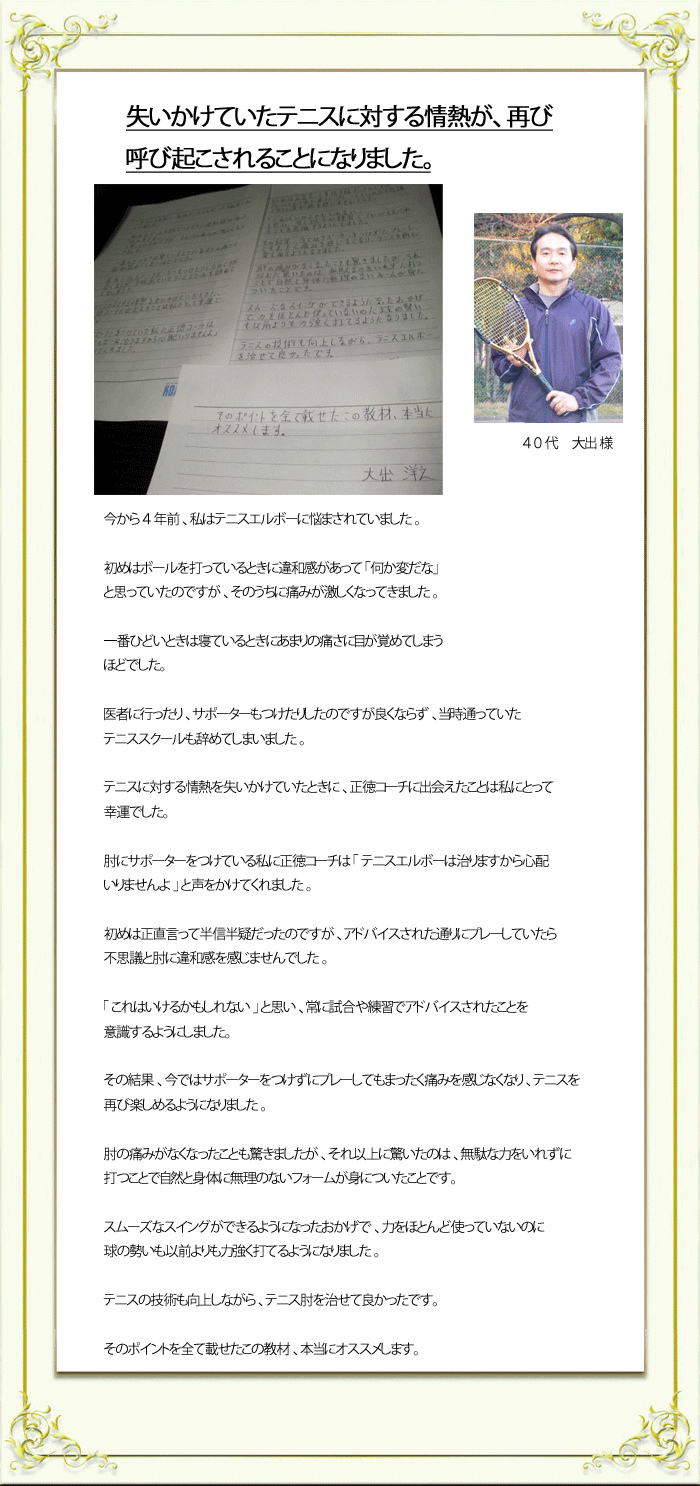 失いかけていたテニスに対する情熱が、再び
呼び起こされることになりました。
スムーズなスイングができるようになったおかげ
で力をほとんど使っていないのに球の勢い
も以前よりも力強く打てるようになりました。
テニスの技術も向上しながら、テニスエルボー
を治せて良かったです。
そのポイントを全て載せたこの教材、本当に
オススメします。
大出
40代 大出様
今から4年前、私はテニスエルボーに悩まされていました。
初めはボールを打っているときに違和感があって「何か変だな」
と思っていたのですが、そのうちに痛みが激しくなってきました。
一番ひどいときは寝ているときにあまりの痛さに目が覚めてしまう
ほどでした。
医者に行ったり、サポーターもつけたりしたのですが良くならず、当時通っていた
テニススクールも辞めてしまいました。
テニスに対する情熱を失いかけていたときに、正徳コーチに出会えたことは私にとって
幸運でした。
肘にサポーターをつけている私に正徳コーチは「テニスエルボーは治りますから心配
いりませんよ」と声をかけてくれました。
初めは正直言って半信半疑だったのですが、アドバイスされた通りにプレーしていたら
不思議と肘に違和感を感じませんでした。
「これはいけるかもしれない」と思い、常に試合や練習でアドバイスされたことを
意識するようにしました。
その結果、今ではサポーターをつけずにプレーしてもまったく痛みを感じなくなり、テニスを
再び楽しめるようになりました。
肘の痛みがなくなったことも驚きましたが、それ以上に驚いたのは、無駄な力をいれずに
打つことで自然と身体に無理のないフォームが身についたことです。
スムーズなスイングができるようになったおかげで、力をほとんど使っていないのに
球の勢いも以前よりも力強く打てるようになりました。
テニスの技術も向上しながら、テニス肘を治せて良かったです。
そのポイントを全て載せたこの教材、本当にオススメします。